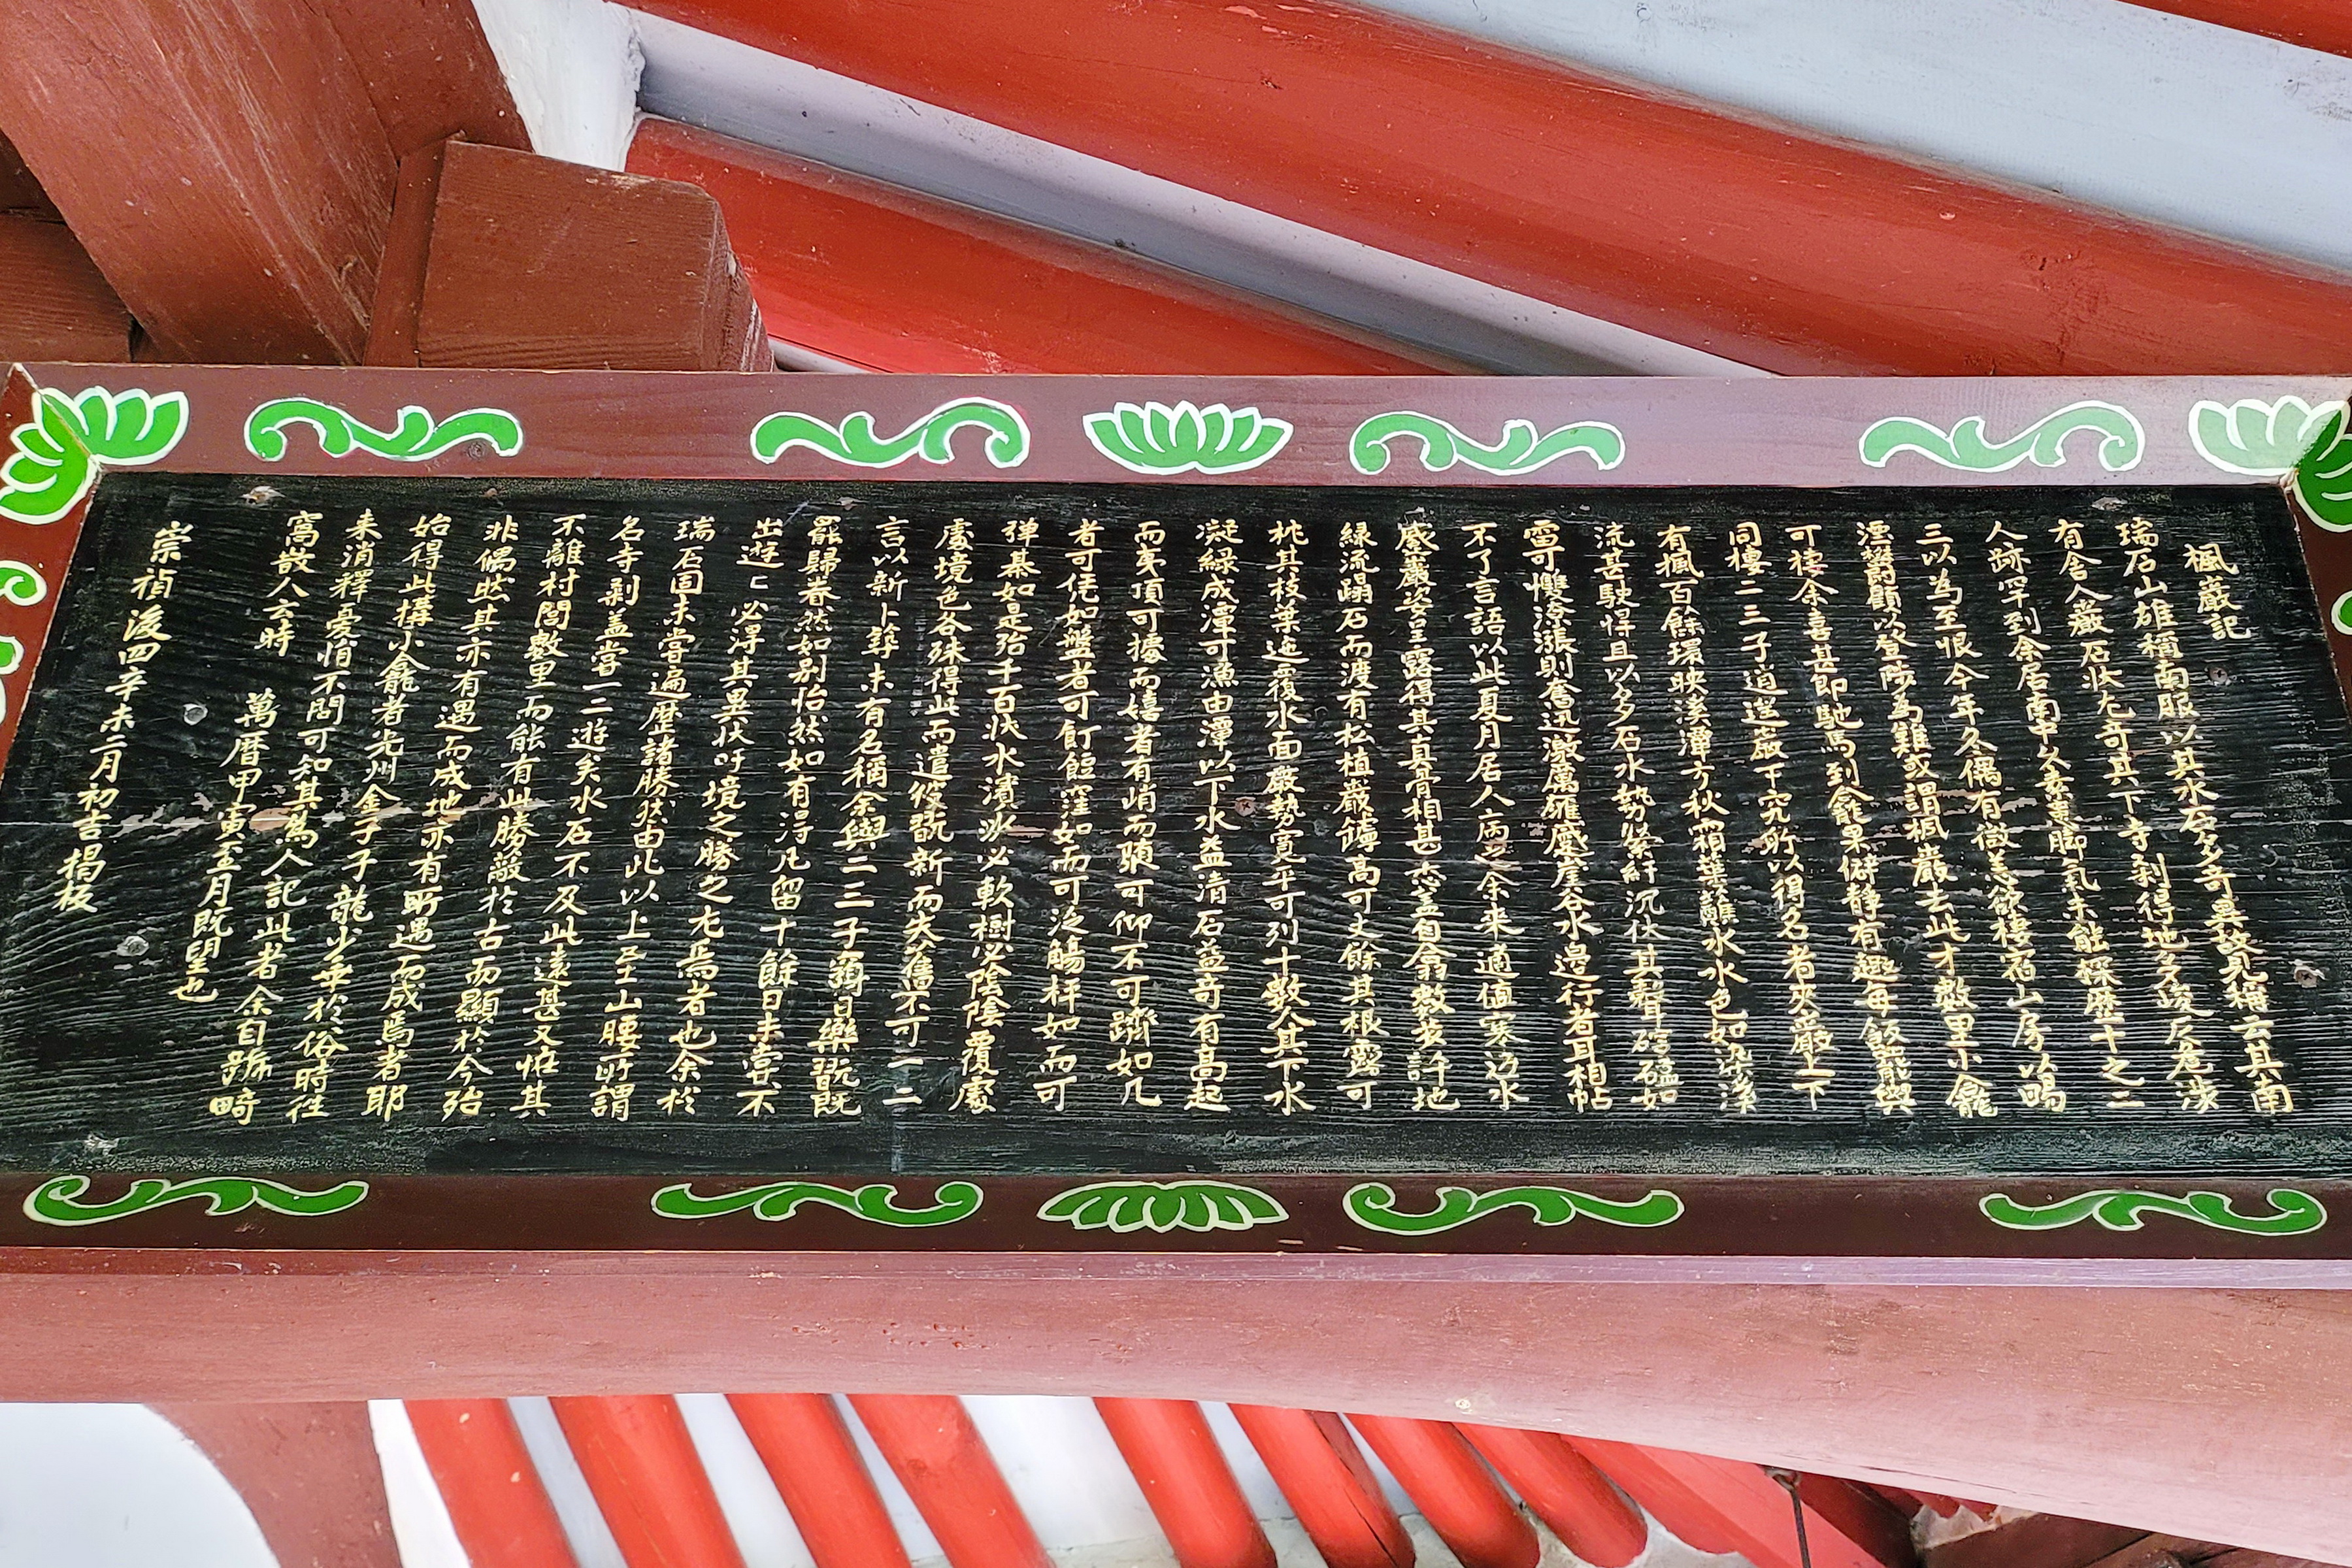 楓巖記
瑞石山雄稱南服以其水石多奇異故見稱云其南
有舍人巖石狀尤奇其下寺刹得地多峻反危涉
人跡罕到余居南中久素患脚氣未能探歷十之二
三以為至恨今年久偶有微恙欲棲宿山房以暢
湮鬱顧以登陟為難或謂楓巖去此才數里小龕
可棲余喜甚即馳馬到龕果僻靜有趣每飯罷與
同棲二三子逍遙巖下究所以得名者夾巖上下
有楓百餘環映溪潭方秋霜葉離水水色如染溪
流甚駛悍且以多石水勢縈紆沉伏其聲硠磕如
雷可懼潦漲則奮迅激厲雁崖谷水邊行者耳相帖
不了言語以此夏月居人病之余来適值寒沍水
盛巖姿呈露得其真骨相甚悉盖自翕數荄許地
綠流蹋石而渡有松植巖罅高可丈餘其根露可
枕其枝葉迤覆水面巖勢寬平可列十數人其下水
凝綠成潭可漁由潭以下水益清石益奇有高起
而夷頂可據而嬉者有峭而䫌可仰不可躋如几
者可凭如盤者可飣餖窪如而可泛觴枰如而可
弾棊如是殆千百狀水濱必軟樹必陰陰覆處
處境色各殊得此而遣彼翫新而失舊不可一二
言以新卜尋未有名稱余與二三子窮日樂翫既
罷歸眷然如别怡然如有得凡留十餘日未嘗不
出遊上必得其異狀吁境之勝之尤焉者也余於
瑞石固未嘗遍歷諸勝然由此以上至山腰所謂
名寺刹盖嘗一二遊矣水石不及此遠甚又恠其
不離村閭數里而能有此勝蔽於古而顯於今殆
非偶然其亦有遇而成地亦有所遇而成焉者耶
始得此構小龕者光州金子子龍少乖於俗時徃
来消釋憂悁不問可知其為人記此者余自號畸
窩散人云時
萬曆甲寅五月既望也
崇禎後四辛未二月初吉揭板